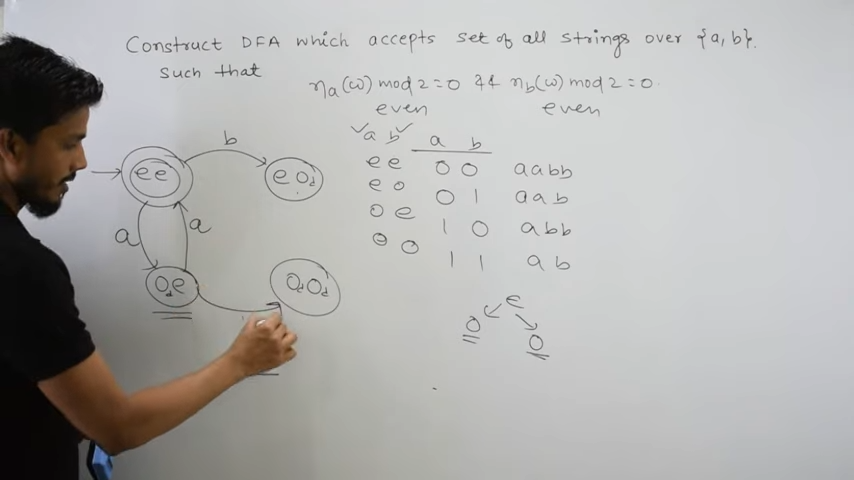 Construct DFA which accepts set of all strings over {a, b}.
such that
na(ω) mod 2 = 0 && nb(ω) mod 2 = 0.
even even
a b a b
e e 0 0 aabb
e o 0 1 aab
o e 1 0 abb
o o 1 1 ab
b
ee
eod
a a
ode
odod
e
o
o